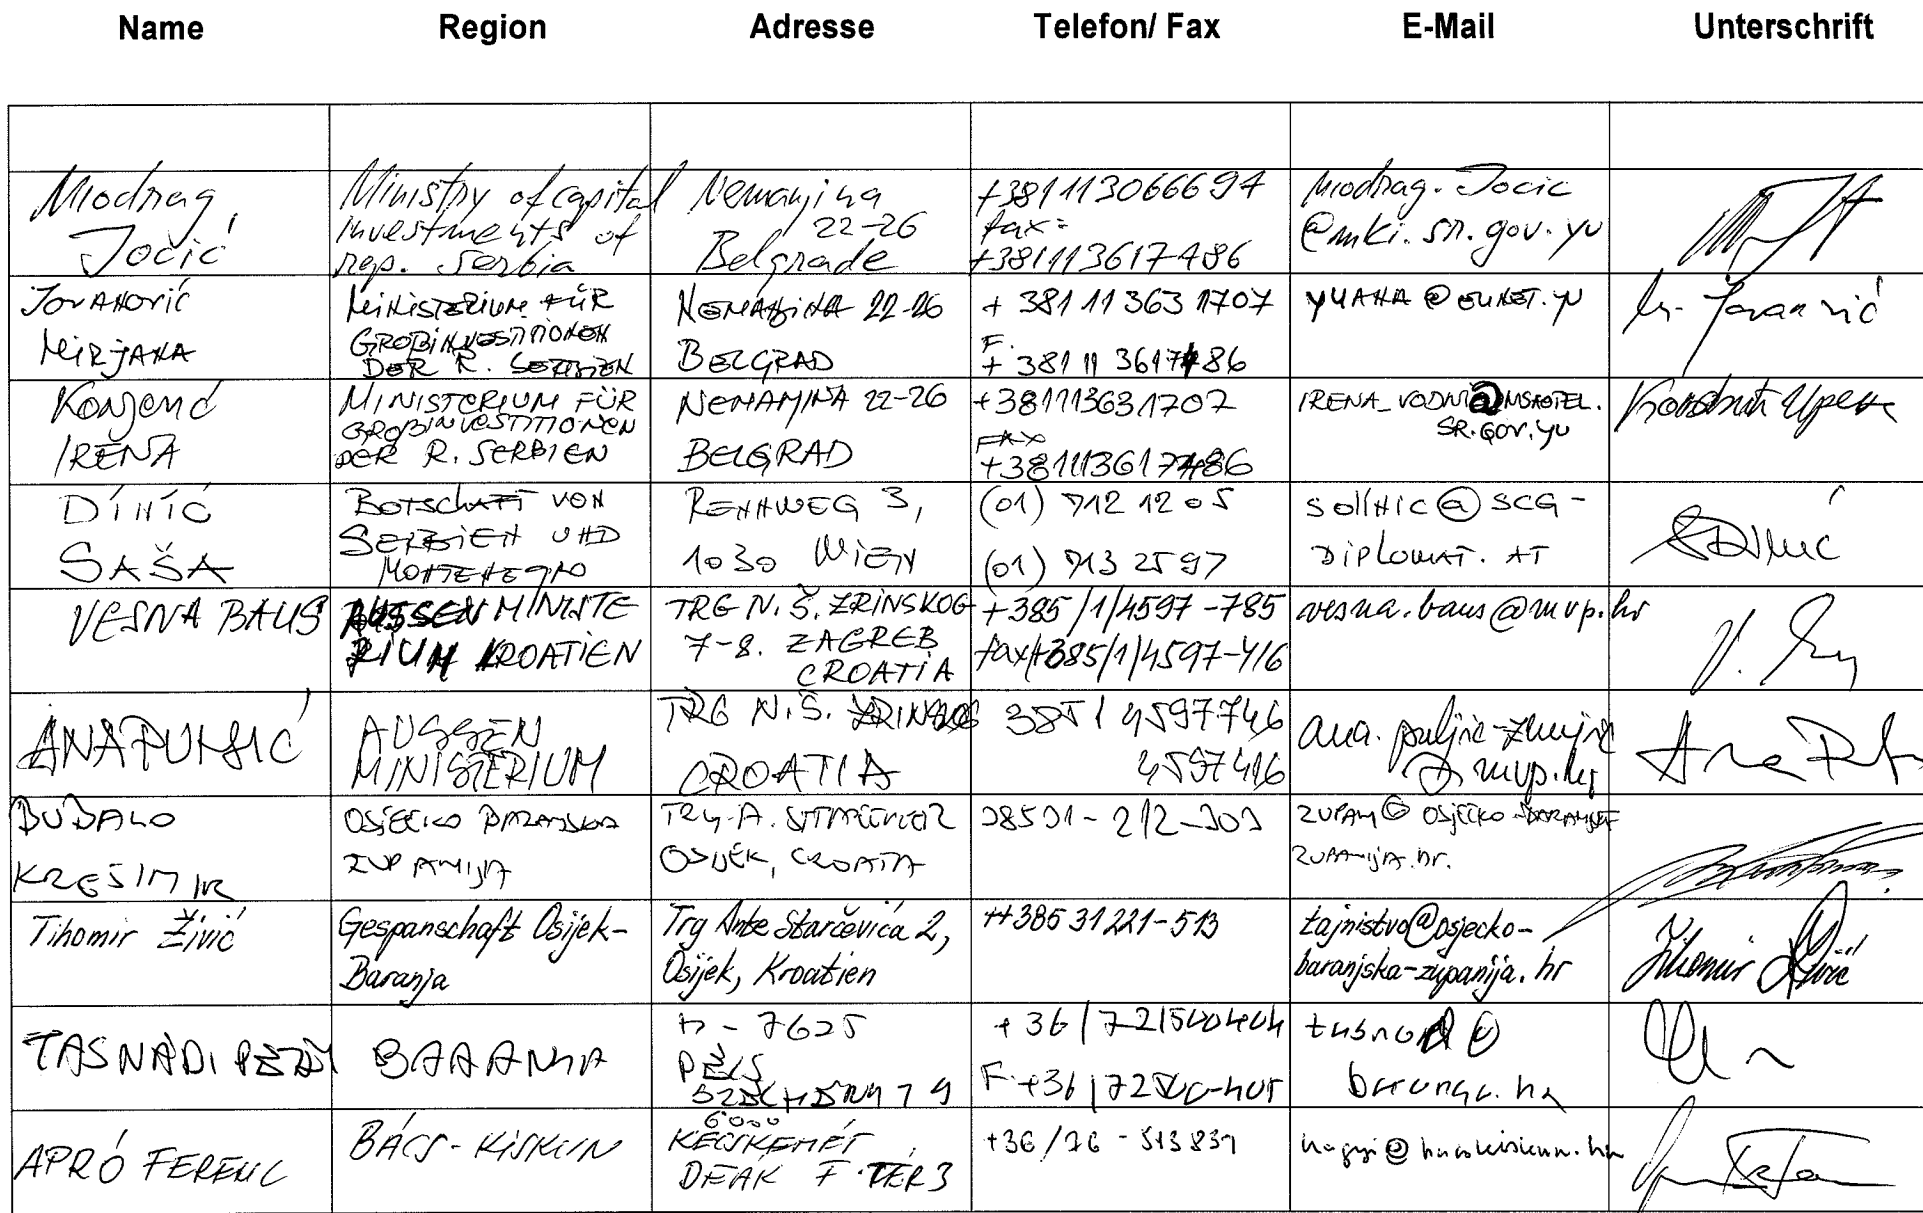 Name Region Adresse Telefon/ Fax E-Mail Unterschrift
Miodrag
Jocić
Ministry of capital
investments of
rep. Serbia
Nemanjina
22-26
Belgrade
+381113066694
fax:
+381113617486
miodrag.Jocic
@mki.sr.gov.yu
JOVANOVIĆ
MIRJANA
MINISTERIUM FÜR
GROBINVESTITIONEN
DER R. SERBIEN
NEMANJINA 22-26
BELGRAD
+ 381 11 363 1707
F.
+ 381 11 3617486
YUANA @ EUNET.YU
M. Jovanović
IRENA
MINISTERIUM FÜR
GROBINVESTITIONEN
DER R. SERBIEN
NEMANJINA 22-26
BELGRAD
+381113631707
FAX
+381113617486
SR.GOV.YU
DINIĆ
SAŠA
BOTSCHAFT VON
SERBIEN UND
MONTENEGRO
RENNWEG 3,
1030 WIEN
(01) 712 12 05
(01) 713 2597
@ SCG-
DIPLOMAT. AT
VESNA BAUS
AUSSENMINISTE
RIUM KROATIEN
TRG N. Š. ZRINSKOG
7-8. ZAGREB
CROATIA
+385/1/4597-785
fax+385/1/4597-416
vesna.baus@mvp.hr
AUSSEN
MINISTERIUM
TRG N.Š. ZRINSKOG
CROATIA
385 1 4597746
4597416
ana.puljic-zmijic
@mvp.hr
BUBALO
KREŠIMIR
OSJEČKO BARANJSKA
ŽUPANIJA
OSIJEK, CROATIA
ZUPAN@ OSJECKO-BARANJSKA
ZUPANIJA.HR.
Tihomir Živić
Gespanschaft Osijek-
Baranja
Trg Ante Starčevića 2,
Osijek, Kroatien
++38531221-513
tajnistvo@osjecko-
baranjska-zupanija.hr
Tihomir Živić
TASNÁDI
BARANYA
H - 7625
PÉCS
APRÓ FERENC
BÁCS-KISKUN
6000
KECSKEMÉT
DEÁK F. TÉR 3
+36/76 - 513831